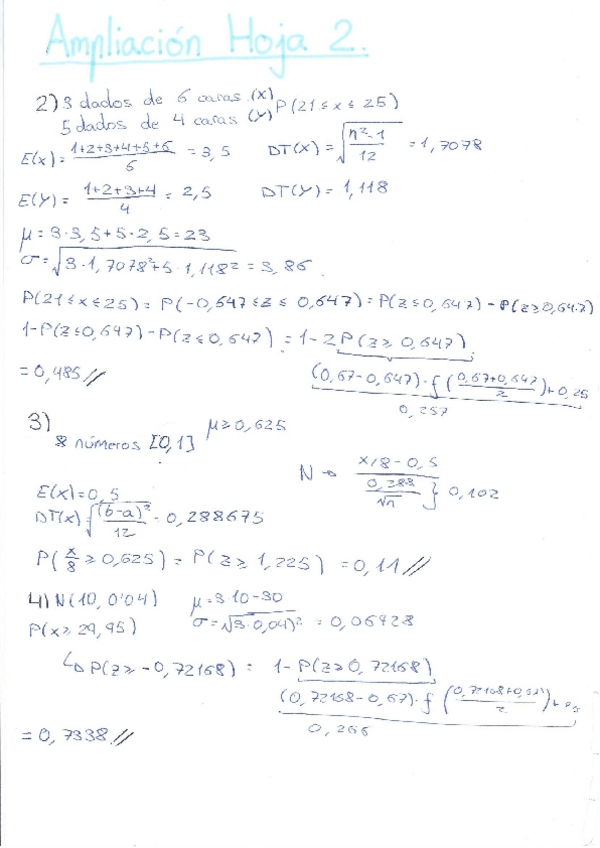 Ampliación Hoja 2.
2) 3 dados de 6 caras (X) P(21 ≤ x ≤ 25)
5 dados de 4 caras (Y)
E(x) = (1+2+3+4+5+6)/6 = 3,5 DT(X) = √((n²-1)/12) = 1,7078
E(Y) = (1+2+3+4)/4 = 2,5 DT(Y) = 1,118
μ = 3·3,5 + 5·2,5 = 23
σ = √(3·1,7078² + 5·1,118²) = 3,86
P(21 ≤ x ≤ 25) = P(-0,647 ≤ z ≤ 0,647) = P(z ≤ 0,647) - P(z ≥ 0,647)
1-P(z ≤ 0,647) - P(z ≤ 0,647) = 1-2P(z ≥ 0,647)
= 0,485 // (0,67-0,647)·f((0,67+0,647)/2)+0,25
0,257
3) 8 números [0,1] μ ≥ 0,625
N → (x/8 - 0,5)/(0,288/√n) } 0,102
E(X) = 0,5
DT(x) = √((b-a)²/12) = 0,288675
P(x/8 ≥ 0,625) = P(z ≥ 1,225) = 0,11 //
4) N(10, 0'04) μ = 3·10 = 30
P(x ≥ 29,95) σ = √(3·0,04)² = 0,06928
↳ P(z ≥ -0,72168) = 1-P(z ≥ 0,72168)
(0,72168-0,67)·f((0,72168+0,67)/2)+
= 0,7338 // 0,266